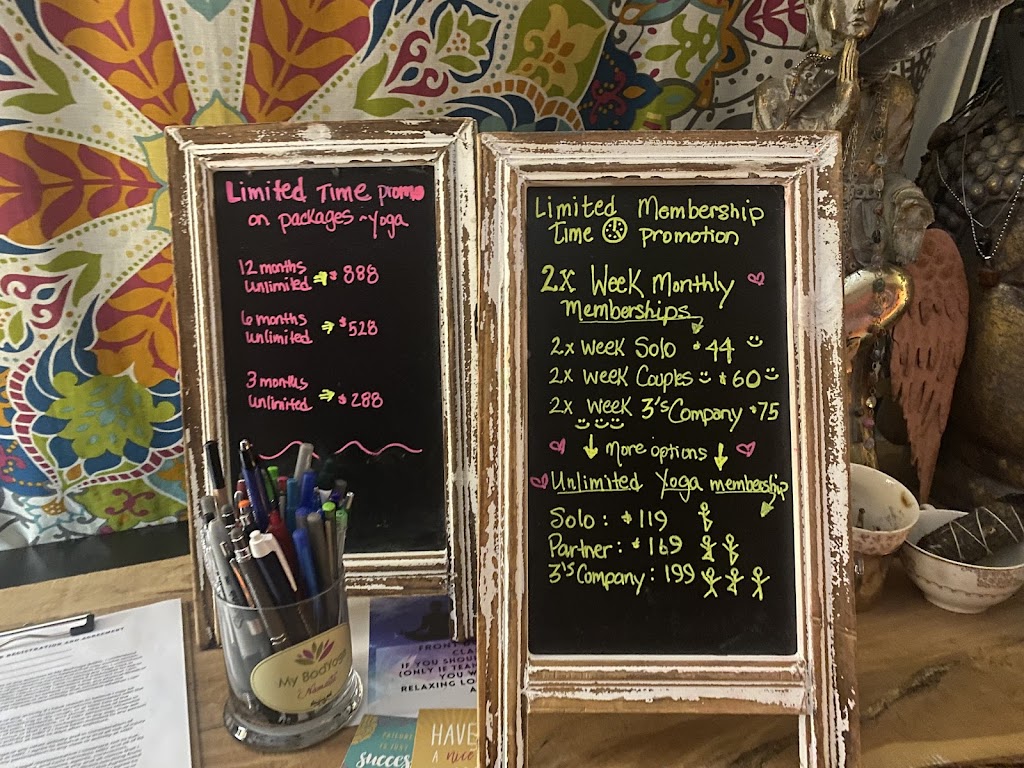 Limited Time promo
on packages ~Yoga
12 months
Unlimited → $888
6 months
Unlimited → $528
3 months
Unlimited → $288
Limited Membership
Time promotion
2x Week Monthly
Memberships
2x week Solo $44
2x week Couples $60
2x week 3's Company $75
More options
Unlimited Yoga membership
Solo: $119
Partner: $169
3's Company: 199
REGISTRATION AND AGREEMENT
My BodYoga
Namaste
FRONT
CLA
IF YOU SHOU
(ONLY IF TEA
YOU W
RELAXING LO
A
success
HAVE
A nice